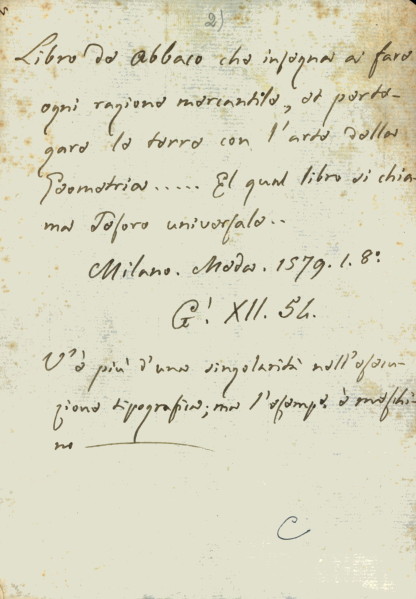 2)
Libro de Abbaco che insegna a fare
ogni ragione mercantile, et perte-
gare le terre con l'arte della
Geometria..... El qual libro si chia-
ma Tesoro universale..
Milano. Meda. 1579. 1. 8:
XII. 54.
V'è più d'una singolarità nell'esecu-
zione tipografica; ma l'esemp. è meschi-
no
C